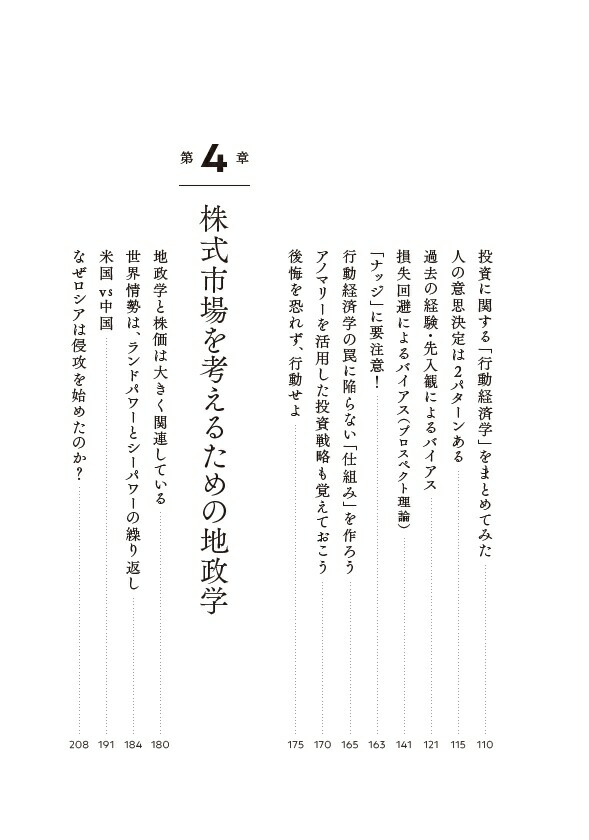 投資に関する「行動経済学」をまとめてみた 110
人の意思決定は2パターンある 115
過去の経験・先入観によるバイアス 121
損失回避によるバイアス(プロスペクト理論) 141
「ナッジ」に要注意! 163
行動経済学の罠に陥らない「仕組み」を作ろう 165
アノマリーを活用した投資戦略も覚えておこう 170
後悔を恐れず、行動せよ 175
第4章
株式市場を考えるための地政学
地政学と株価は大きく関連している 180
世界情勢は、ランドパワーとシーパワーの繰り返し 184
米国 vs 中国 191
なぜロシアは侵攻を始めたのか? 208